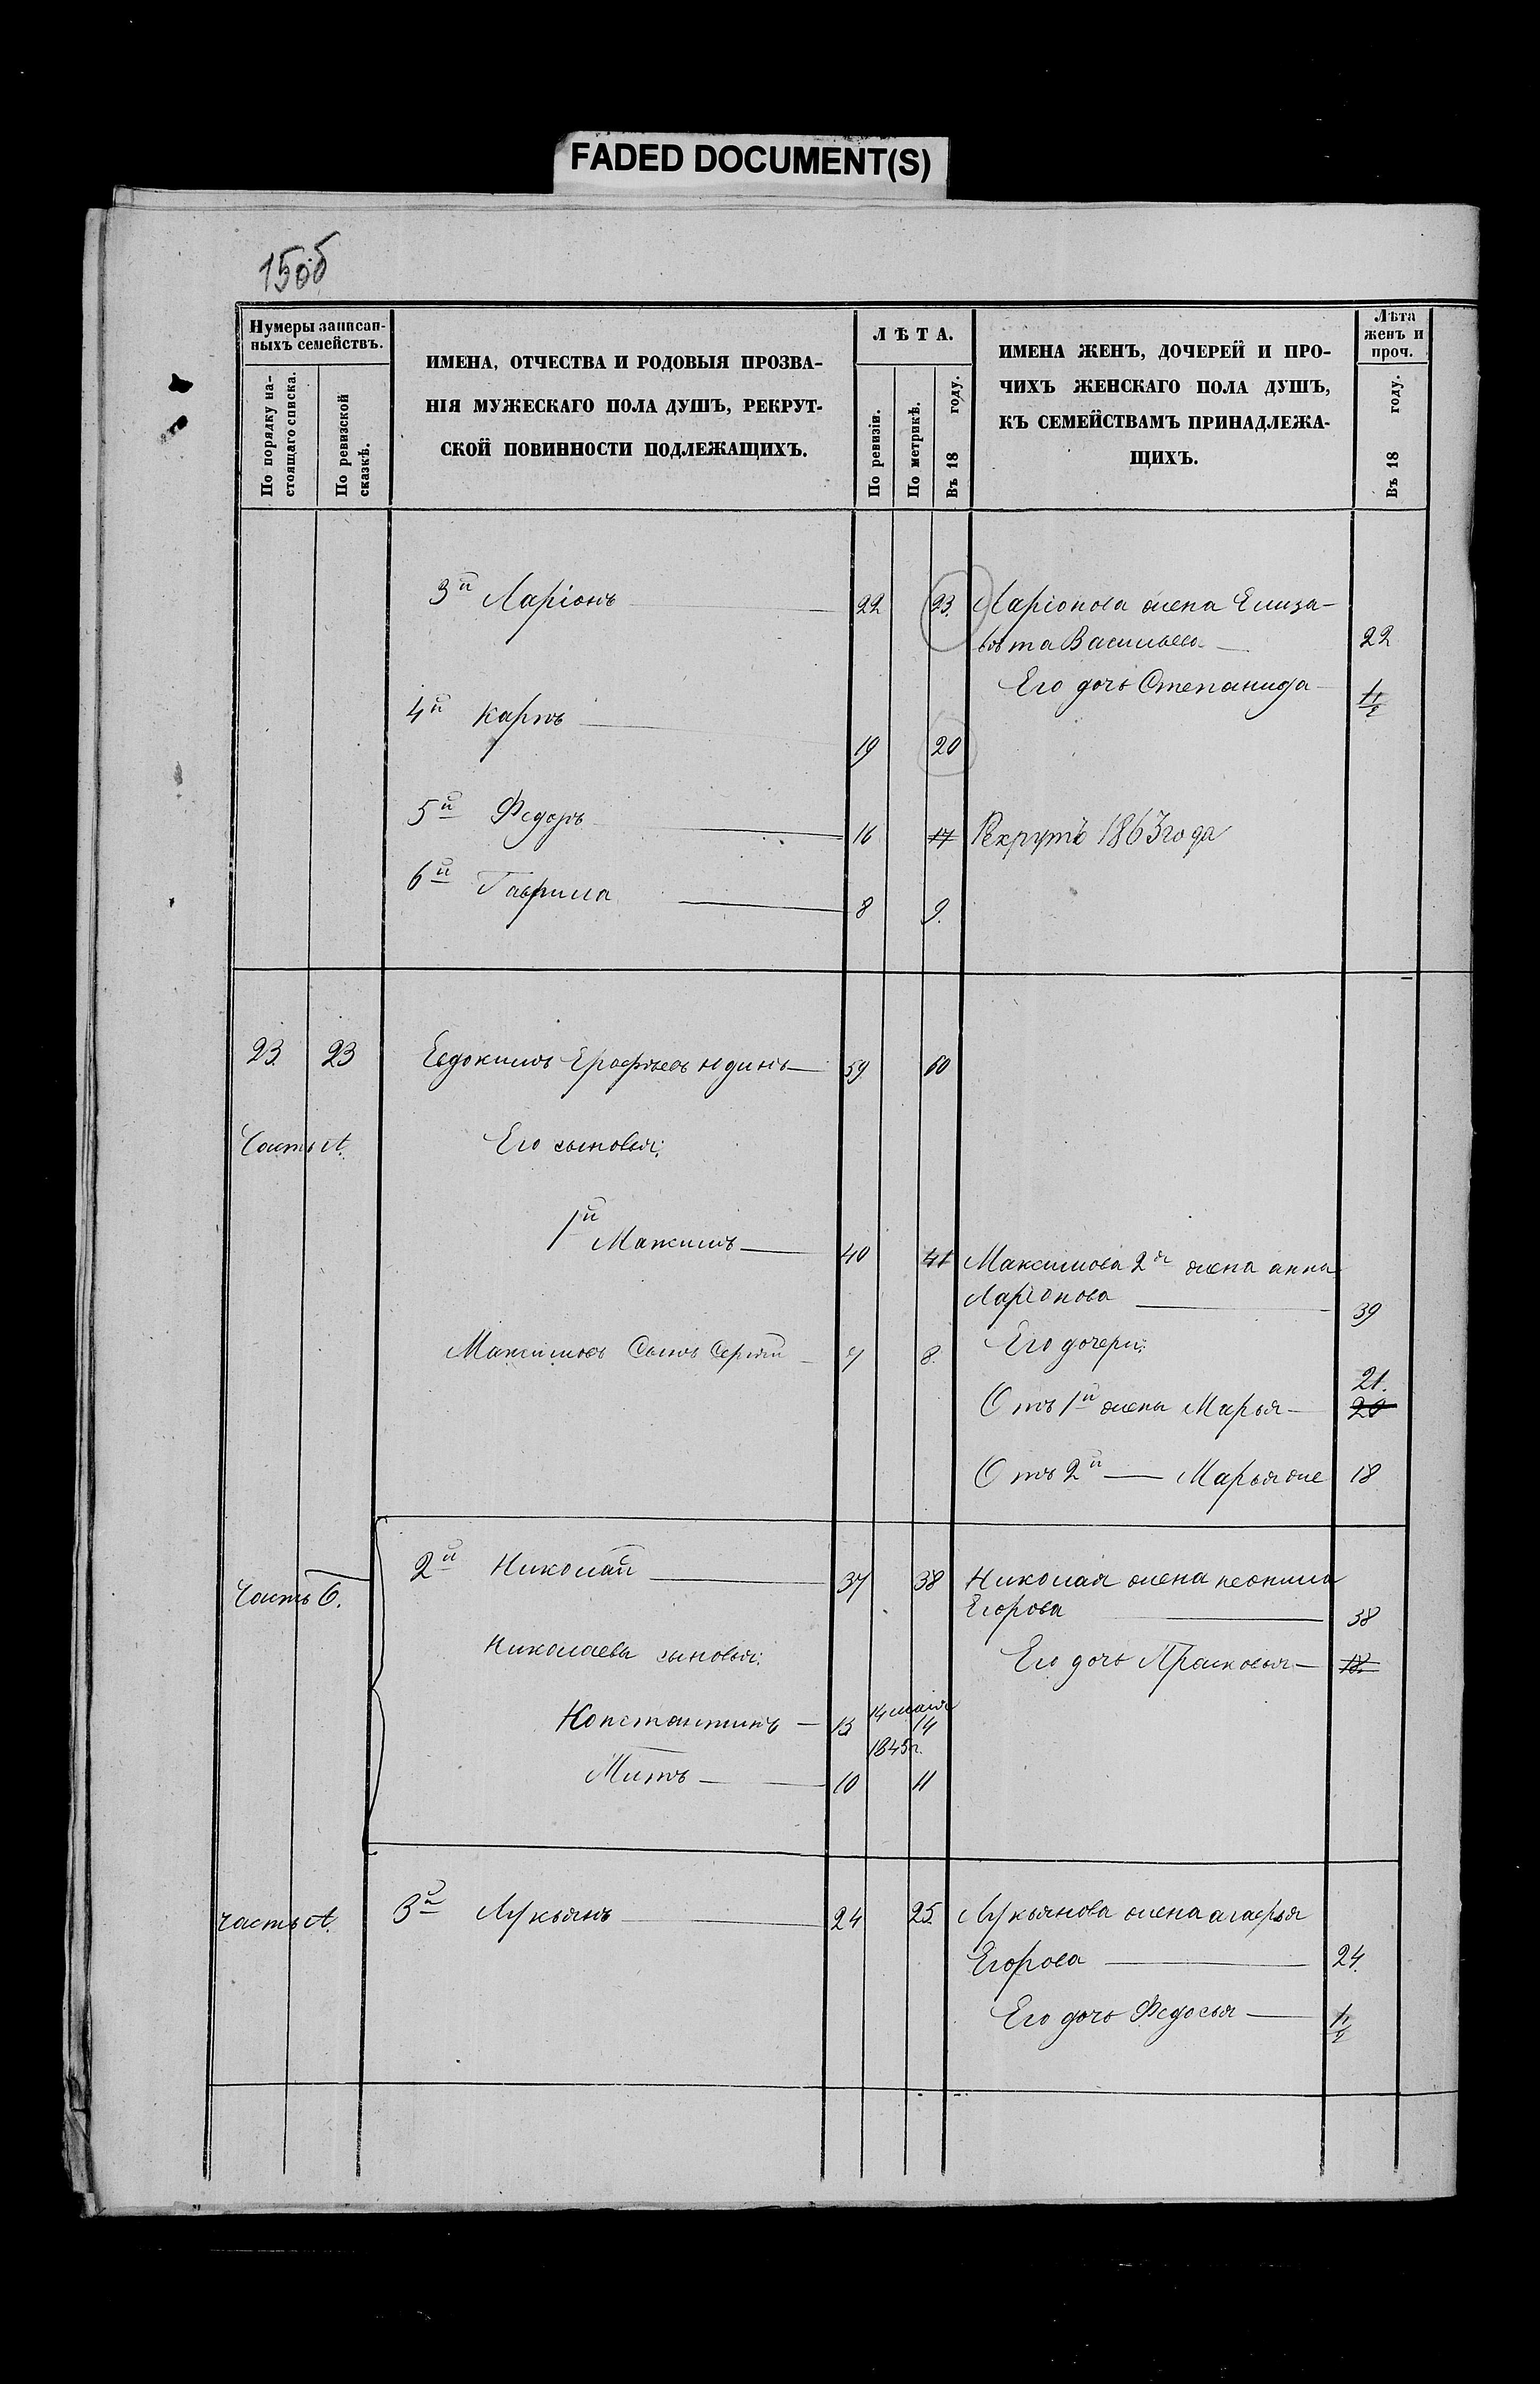 FADED DOCUMENT(S)
150б
Нумеры записан-
ныхъ семействъ.
По порядку на-
стоящаго списка.
По ревизской
сказкѣ.
ИМЕНА, ОТЧЕСТВА И РОДОВЫЯ ПРОЗВА-
НІЯ МУЖЕСКАГО ПОЛА ДУШЪ, РЕКРУТ-
СКОЙ ПОВИННОСТИ ПОДЛЕЖАЩИХЪ.
ЛѢТА.
По ревизіи.
По метрикѣ.
Въ 18 году.
ИМЕНА ЖЕНЪ, ДОЧЕРЕЙ И ПРО-
ЧИХЪ ЖЕНСКАГО ПОЛА ДУШЪ,
КЪ СЕМЕЙСТВАМЪ ПРИНАДЛЕЖА-
ЩИХЪ.
Лѣта
женъ и
проч.
Въ 18 году.
3й Ларіонъ 22 23. Ларіонова жена Елиза-
вѣта Васильева 22
Его дочь Степанида
4й Карпъ 19 20
5й Федоръ 16 17 Рекрутъ 1863 года
6й Гаврила 8 9.
23. 23 Евдокимъ Ерофѣевъ Юдинъ 59 60
Часть А. Его сыновья:
1й Максимъ 40 41 Максимова 2я жена анна
Ларіонова 39
Максимовъ Сынъ Сергѣй 7 8. Его дочери:
21.
Отъ 1й жены Марья 20
Отъ 2й Марья же 18
Часть Б. 2й Николай 37 38 Николая жена неонила
Егорова 38
Николаевы сыновья: Его дочь Прасковья 18.
Константинъ 13 14 маія 1845г. 14
Титъ 10 11
часть А. 3й Лукьянъ 24 25. Лукьянова жена агафья
Егорова 24.
Его дочь Федосья